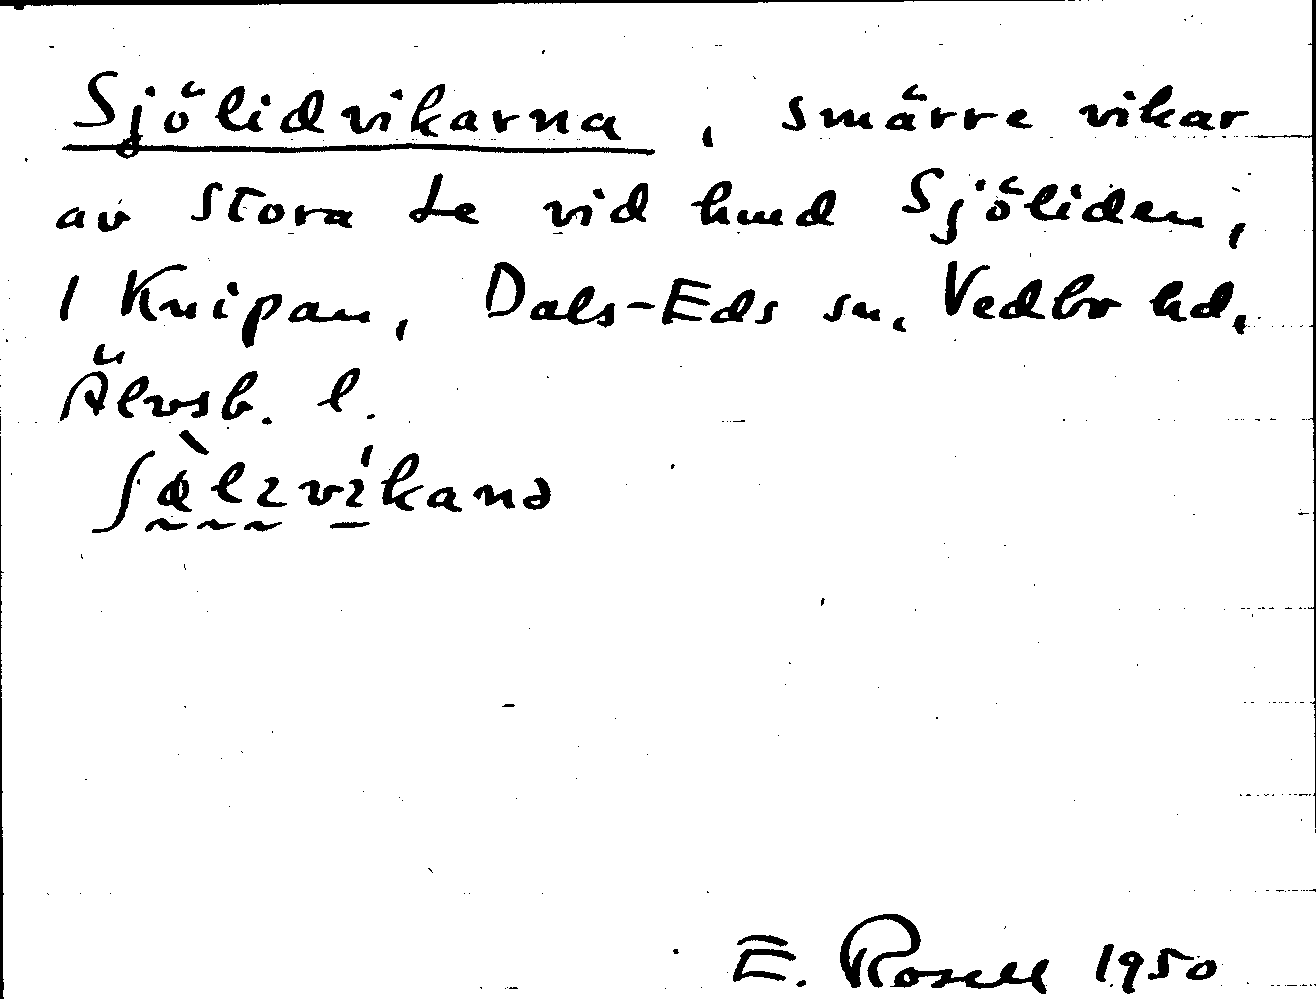 Sjölidvikarna, smärre vikar
av Stora Le vid hmd Sjöliden,
1 Knipan, Dals-Eds sn, Vedbo hd,
Älvsb. l.
E. Rosell 1950